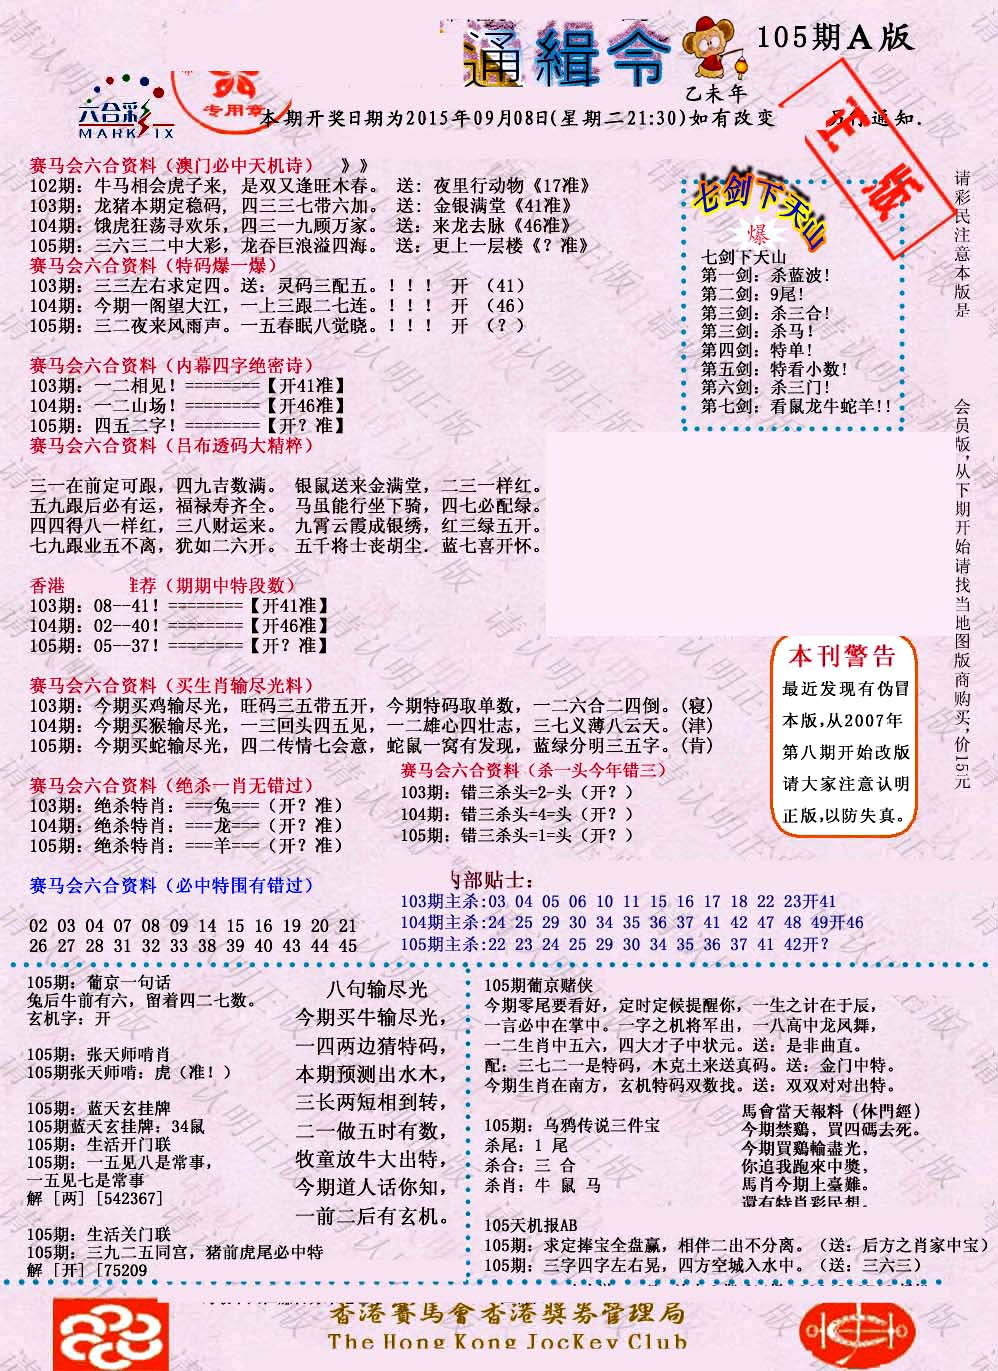 通緝令
105期A版
乙未年
六合彩
MARK SIX
专用章
本期开奖日期为2015年09月08日(星期二21:30)如有改变
通知.
正版
赛马会六合资料（澳门必中天机诗） 》》
102期：牛马相会虎子来, 是双又逢旺木春。 送: 夜里行动物《17准》
103期：龙猪本期定稳码, 四三三七带六加。 送: 金银满堂《41准》
104期：饿虎狂荡寻欢乐，四三一九顾万家。 送：来龙去脉《46准》
105期：三六三二中大彩，龙吞巨浪溢四海。 送：更上一层楼《？准》
赛马会六合资料（特码爆一爆）
103期：三三左右求定四。送：灵码三配五。！！！ 开 （41）
104期：今期一阁望大江，一上三跟二七连。！！！ 开 （46）
105期：三二夜来风雨声。一五春眠八觉晓。！！！ 开 （？）
赛马会六合资料（内幕四字绝密诗）
103期：一二相见！========【开41准】
104期：一二山场！========【开46准】
105期：四五二字！========【开？准】
赛马会六合资料（吕布透码大精粹）
三一在前定可跟，四九吉数满。 银鼠送来金满堂，二三一样红。
五九跟后必有运，福禄寿齐全。 马虽能行坐下骑，四七必配绿。
四四得八一样红，三八财运来。 九霄云霞成银绣，红三绿五开。
七九跟业五不离，犹如二六开。 五千将士丧胡尘．蓝七喜开怀。
七剑下天山
爆
七剑下天山
第一剑：杀蓝波！
第二剑：9尾！
第三剑：杀三合！
第三剑：杀马！
第四剑：特单！
第五剑：特看小数！
第六剑：杀三门！
第七剑：看鼠龙牛蛇羊！！
请彩民注意本版是
会员版，从下期开始请找当地图版商购买，价15元
香港
推荐（期期中特段数）
103期：08--41！========【开41准】
104期：02--40！========【开46准】
105期：05--37！========【开？准】
赛马会六合资料（买生肖输尽光料）
103期：今期买鸡输尽光，旺码三五带五开，今期特码取单数，一二六合二四倒。(寝)
104期：今期买猴输尽光，一三回头四五见，一二雄心四壮志，三七义薄八云天。(津)
105期：今期买蛇输尽光，四二传情七会意，蛇鼠一窝有发现，蓝绿分明三五字。(肯)
本刊警告
最近发现有伪冒
本版，从2007年
第八期开始改版
请大家注意认明
正版，以防失真。
赛马会六合资料（绝杀一肖无错过）
103期：绝杀特肖：===兔===（开？准）
104期：绝杀特肖：===龙===（开？准）
105期：绝杀特肖：===羊===（开？准）
赛马会六合资料（杀一头今年错三）
103期：错三杀头=2-头（开？）
104期：错三杀头=4=头（开？）
105期：错三杀头=1=头（开？）
赛马会六合资料（必中特围有错过）
02 03 04 07 08 09 14 15 16 19 20 21
26 27 28 31 32 33 38 39 40 43 44 45
内部贴士：
103期主杀:03 04 05 06 10 11 15 16 17 18 22 23开41
104期主杀:24 25 29 30 34 35 36 37 41 42 47 48 49开46
105期主杀:22 23 24 25 29 30 34 35 36 37 41 42开?
105期：葡京一句话
兔后牛前有六，留着四二七数。
玄机字：开
105期：张天师啃肖
105期张天师啃：虎（准！）
105期：蓝天玄挂牌
105期蓝天玄挂牌：34鼠
105期：生活开门联
105期：一五见八是常事，
一五见七是常事
解［两］[542367]
105期：生活关门联
105期：三九二五同宫，猪前虎尾必中特
解［开］[75209
八句输尽光
今期买牛输尽光，
一四两边猜特码，
本期预测出水木，
三长两短相到转，
二一做五时有数，
牧童放牛大出特，
今期道人话你知，
一前二后有玄机。
105期葡京赌侠
今期零尾要看好，定时定候提醒你，一生之计在于辰，
一言必中在掌中。一字之机将军出，一八高中龙凤舞，
一二生肖中五六，四大才子中状元。送：是非曲直。
配：三七二一是特码，木克土来送真码。送：金门中特。
今期生肖在南方，玄机特码双数找。送：双双对对出特。
105期：乌鸦传说三件宝
杀尾：1 尾
杀合：三 合
杀肖：牛 鼠 马
馬會當天報料（休門經）
今期禁鷄，買四碼去死。
今期買鷄輸盡光，
你追我跑來中獎，
馬肖今期上臺難。
還有特肖彩民想。
105天机报AB
105期：求定捧宝全盘赢，相伴二出不分离。（送：后方之肖家中宝）
105期：三字四字左右晃，四方空城入水中。（送：三六三）
香港賽馬會香港獎券管理局
The Hong Kong Jockey Club